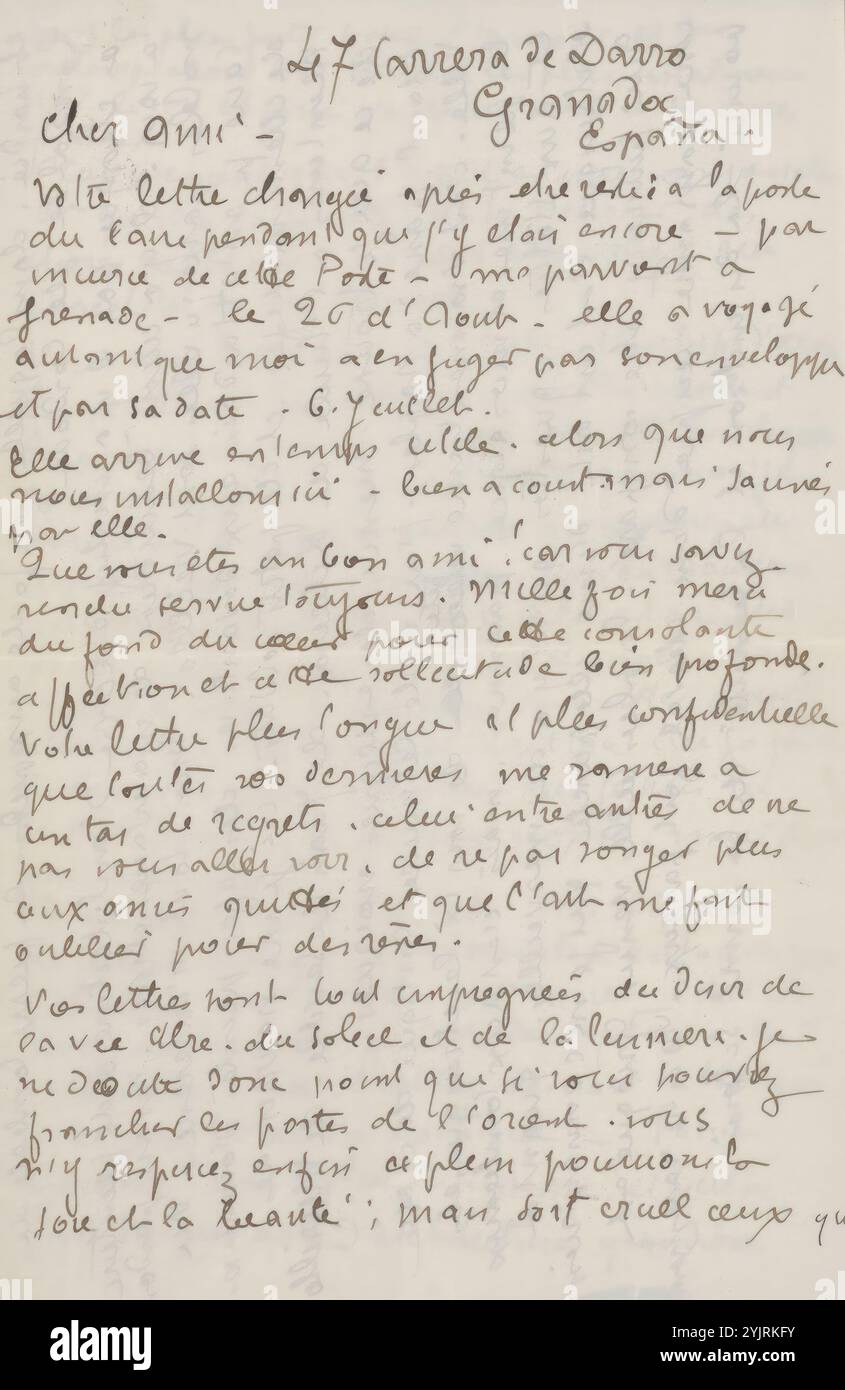 47 Carrera de Darro
Granada
España.
Cher ami -
Votre lettre changée après être restée à la poste
du Caire pendant que j'y étais encore - par
incurie de cette Poste - me parvient a
Grenade - le 26 d'Aout. elle a voyagé
autant que moi a en juger par son enveloppe
et par sa date. 6. Juillet.
Elle arrive en temps utile. alors que nous
nous installons ici - bien a court. mais sauvés
par elle.
Que vous êtes un bon ami! car vous savez
rendre service toujours. Mille fois merci
du fond du cœur pour cette consolante
affection et cette sollicitude bien profonde.
Votre lettre plus longue et plus confidentielle
que toutes vos dernieres me ramene a
un tas de regrets. celui entre autres de ne
pas vous aller voir, de ne pas songer plus
aux amis quittés et que l'art me fait
oublier pour des rêves.
Vos lettres sont tout impregnées du desir de
la vie libre. du soleil et de la lumiere. je
ne doute donc point que si vous pouviez
franchir les portes de l'orient. vous
n'y respiriez enfin a plein poumons la
joie et la beauté; mais sort cruel ceux qu
alamy
Image ID: 2YJRKFY
www.alamy.com